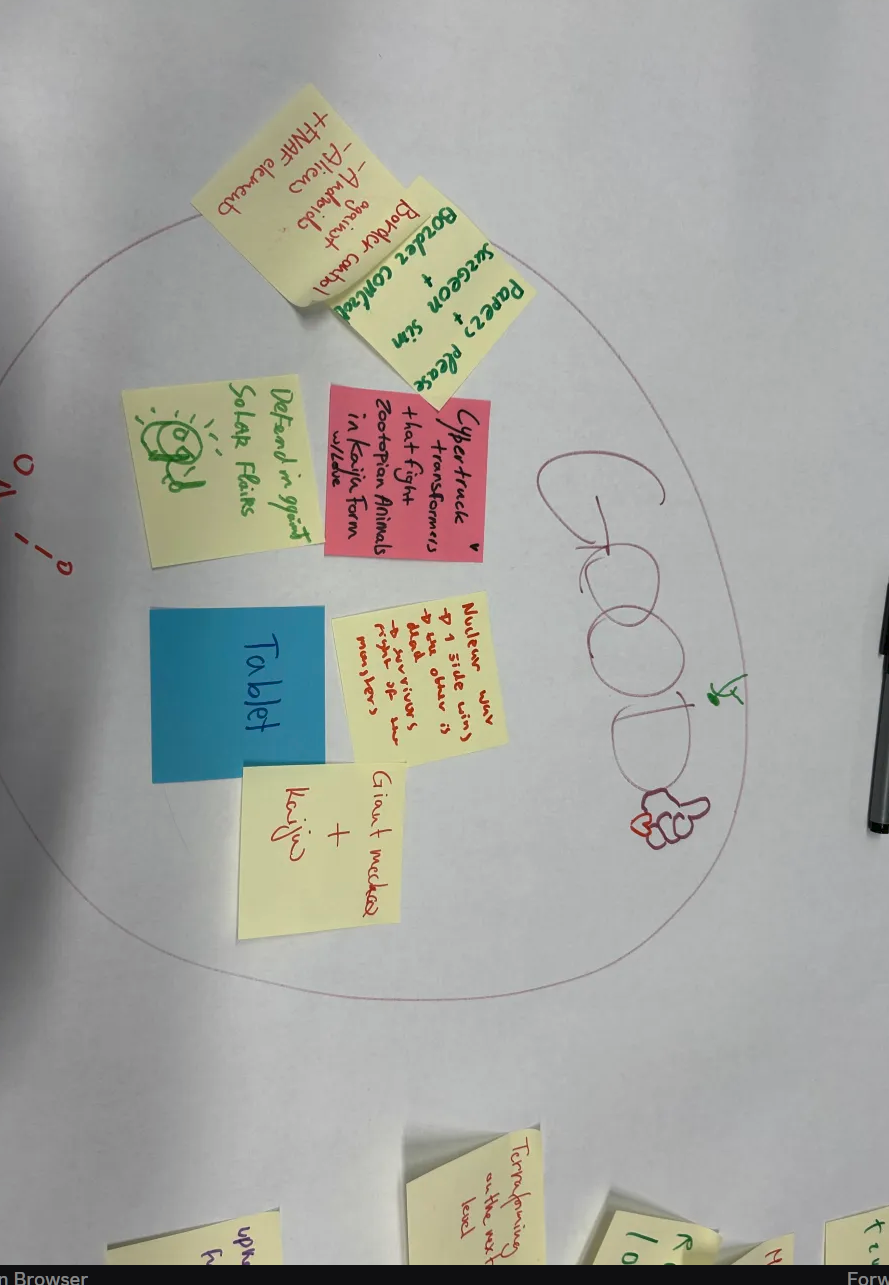 GOOD
Papers please
+
surgeon sim
+
Border control
Border control
against
-Androids
-Aliens
+ FNAF element
Cybertruck
transformers
that fight
Zootopian Animals
in Kaiju Form
w/Love
Defend in against
Solar Flairs
Nuclear war
→ 1 side wins
→ the other is
dead
→ survivors
fight of
monsters
Tablet
Giant mechas
+
Kaiju
Terraforming
on the next
level
n Browser
Forw